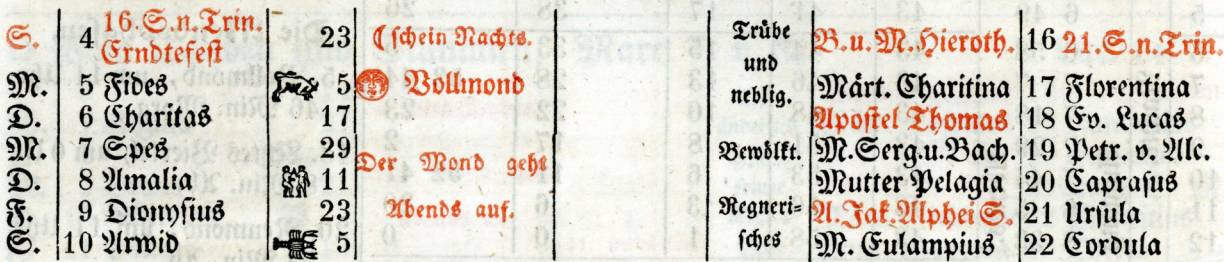 S. 4 16. S. n. Trin. Erndtefest 23 ☾ schein Nachts. Trübe B. u. M. Hieroth. 16 21. S. n. Trin.
M. 5 Fides 5 Vollmond und neblig. Märt. Charitina 17 Florentina
D. 6 Charitas 17 Apostel Thomas 18 Ev. Lucas
M. 7 Spes 29 Der Mond geht Bewölkt. M. Serg. u. Bach. 19 Petr. v. Alc.
D. 8 Amalia 11 Mutter Pelagia 20 Caprasus
F. 9 Dionysius 23 Abends auf. Regneri= A. Jak. Alphei S. 21 Ursula
S. 10 Arwid 5 sches M. Eulampius 22 Cordula